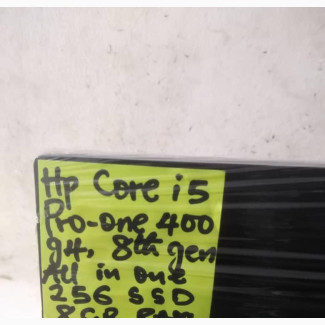 Hp Core i5
Pro-one 400
g4, 8th gen
All in one
256 SSD
8GB Ram